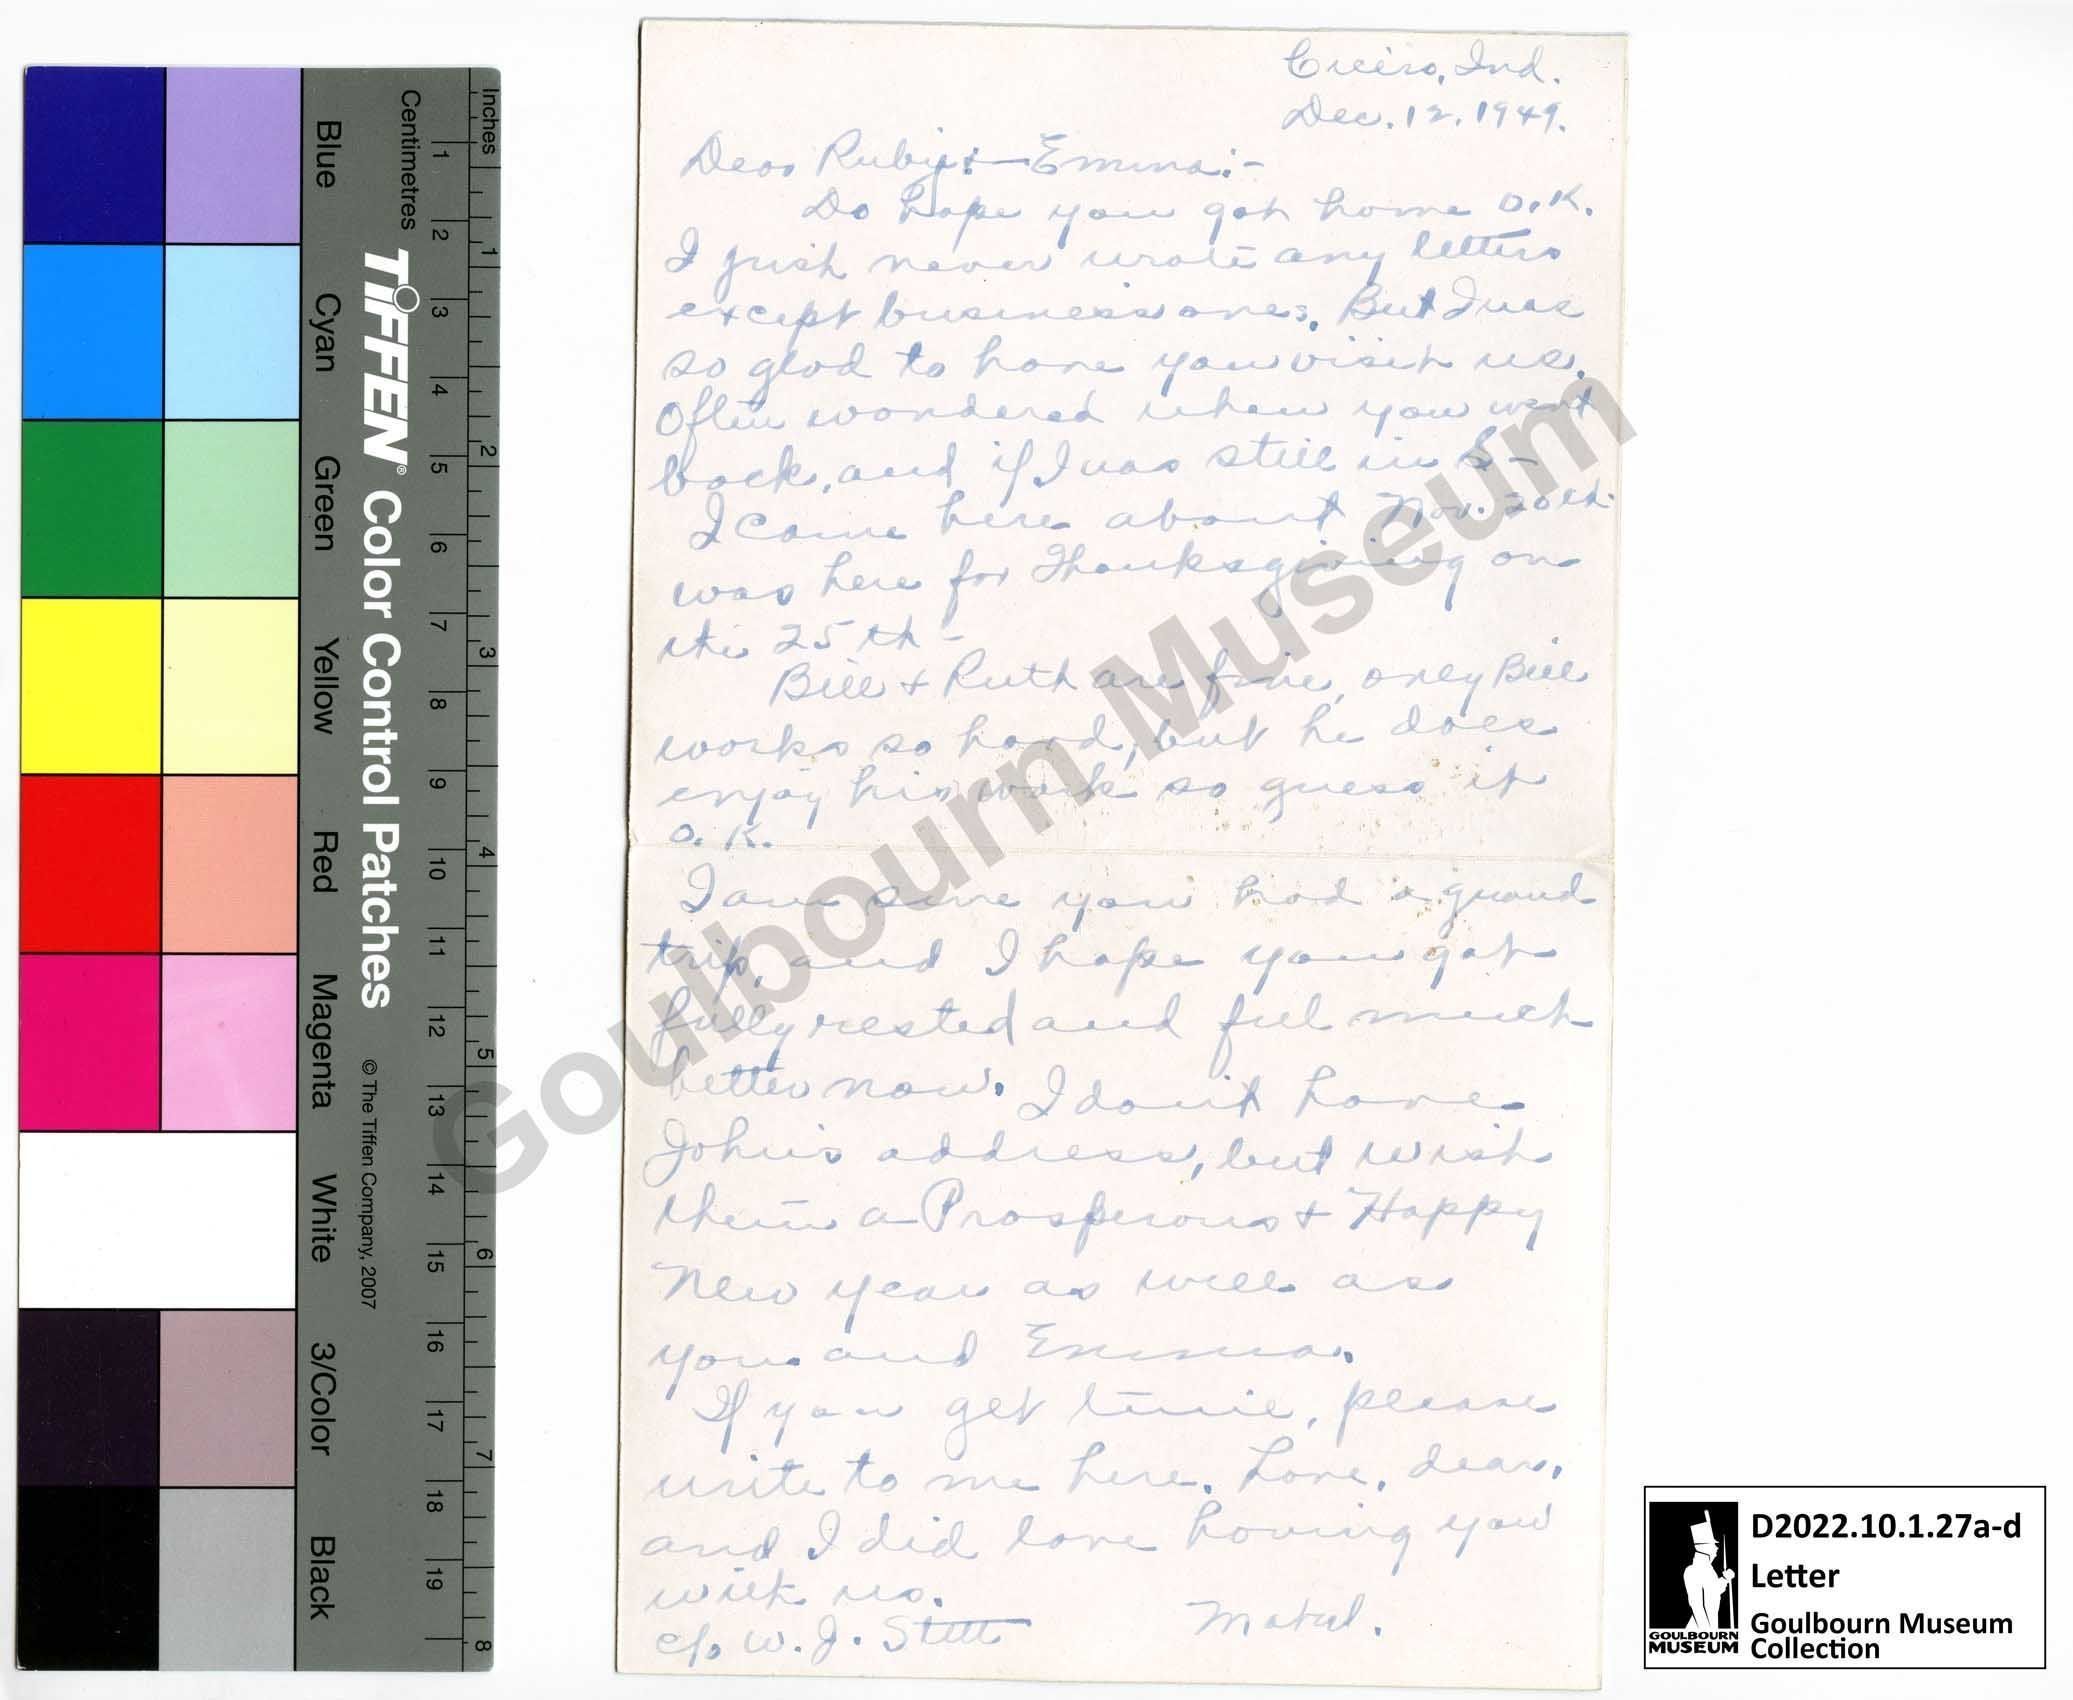 Cicero, Ind.
Dec. 12. 1949.
Dear Ruby & Emma:-
Do hope you got home O.K.
I just never wrote any letters
except business ones. But I was
so glad to have you visit us.
Often wondered when you went
back, and if I was still in S-
I came here about Nov. 20th
was here for Thanksgiving on
the 25th -
Bill & Ruth are fine, only Bill
works so hard, but he does
enjoy his work so guess it
O.K.
I am sure you had a grand
trip, and I hope you got
fully rested and feel much
better now. I don't have
John's address, but wish
them a Prosperous & Happy
New Year as well as
you and Emma.
If you get time, please
write to me here. Love, dear,
and I did love having you
with us.
c/o W. J. Stitt
Blue
Cyan
Green
Yellow
Red
Magenta
White
3/Color
Black
TIFFEN® Color Control Patches
© The Tiffen Company, 2007
Centimetres
1 2 3 4 5 6 7 8 9 10 11 12 13 14 15 16 17 18 19
Inches
1 2 3 4 5 6 7 8
Goulbourn Museum
GOULBOURN
MUSEUM
D2022.10.1.27a-d
Letter
Goulbourn Museum
Collection